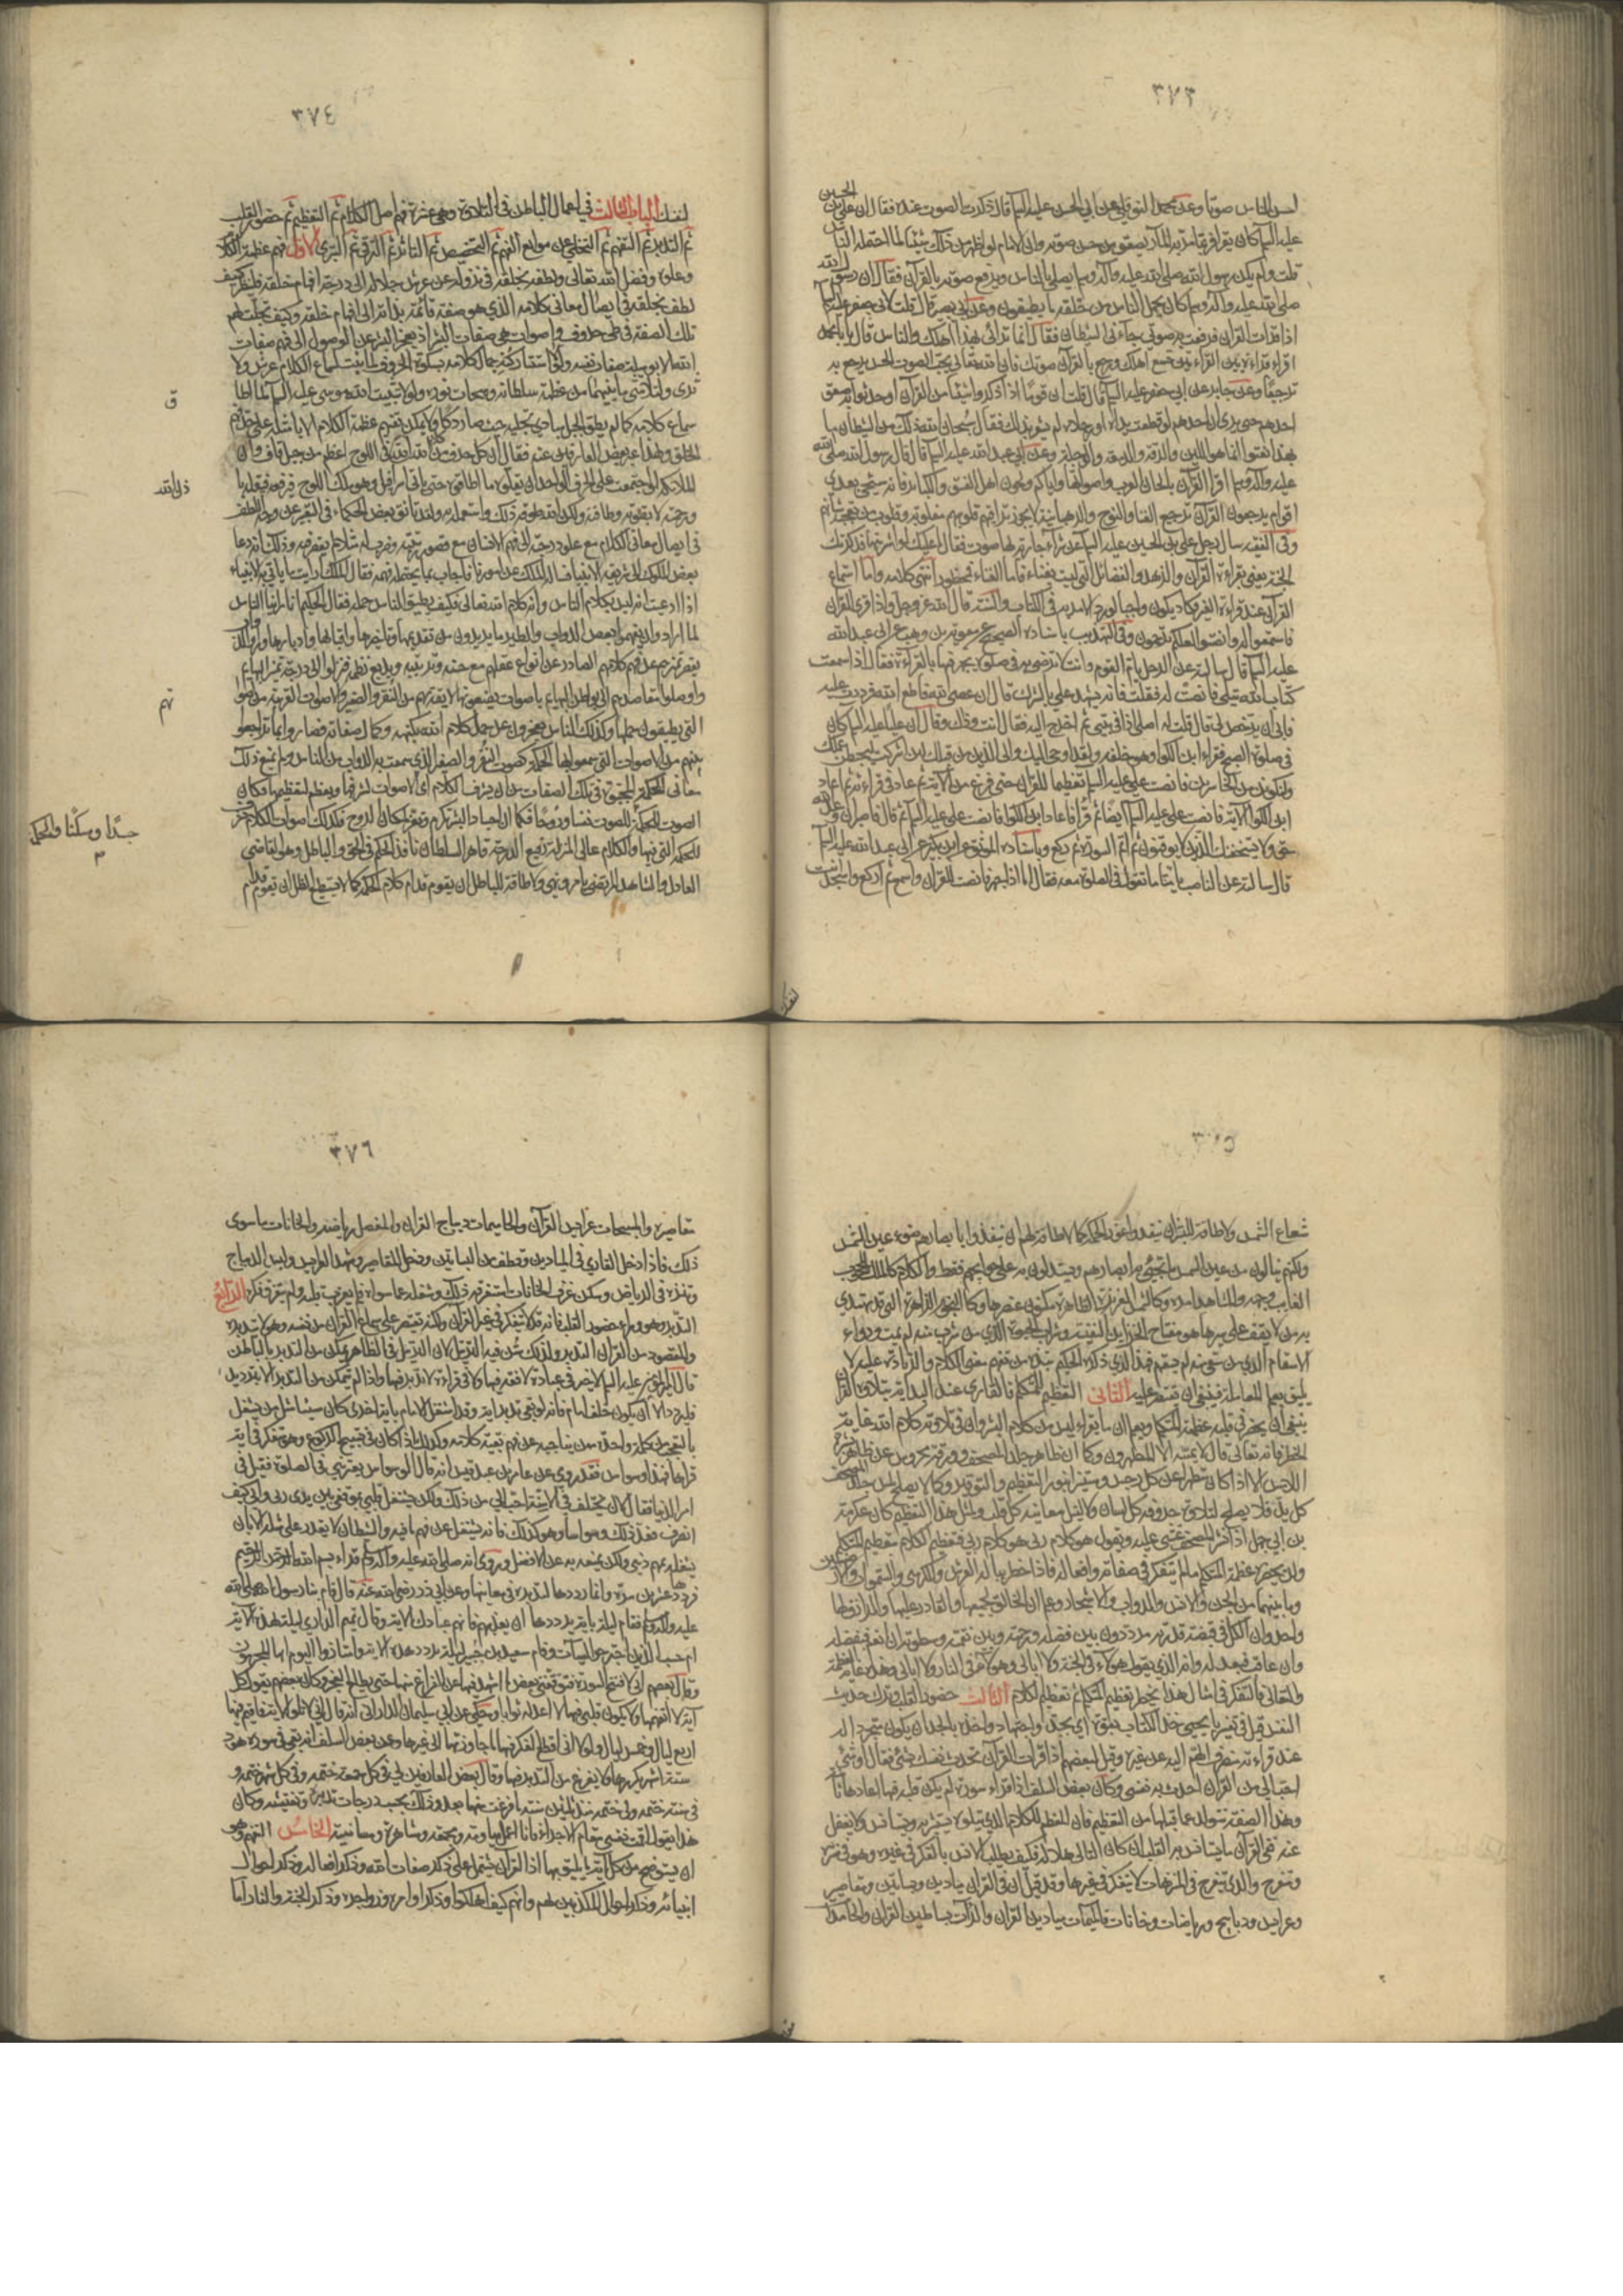 ٣٧٣
احسن الناس صوتا وعن محمد النوفلي عن ابي الحسن عليه السلام قال ذكرت الصوت عنده فقال ان علي بن الحسين
عليه السلام كان يقرأ فربما مر به المار فصعق من حسن صوته وان الامام لو اظهر من ذلك شيئا لما احتمله الناس
قلت ولم يكن رسول الله صلى الله عليه وآله وسلم يصلي بالناس ويرفع صوته بالقرآن فقال ان رسول الله
صلى الله عليه وآله وسلم كان يحمل الناس من خلقه ما يطيقون وعن ابي بصير قال قلت لابي جعفر عليه السلام
اذا قرأت القرآن فرفعت به صوتي جاءني الشيطان فقال انما ترائي بهذا اهلك والناس قال يا با محمد
اقرأ قراءة بين القراءتين تسمع اهلك ورجع بالقرآن صوتك فان الله تعالى يحب الصوت الحسن يرجع به
ترجيعا وعن جابر عن ابي جعفر عليه السلام قال قلت ان قوما اذا ذكروا شيئا من القرآن او حدثوا به صعق
احدهم حتى يرى ان احدهم لو قطعت يداه او رجلاه لم يشعر بذلك فقال سبحان الله ذلك من الشيطان ما
بهذا نعتوا انما هو اللين والرقة والدمعة والوجل وعن ابي عبد الله عليه السلام قال قال رسول الله صلى الله
عليه وآله وسلم اقرأ القرآن بالحان العرب واصواتها واياكم ولحون اهل الفسق والكبائر فانه سيجيء بعدي
اقوام يرجعون القرآن ترجيع الغناء والنوح والرهبانية لا يجوز تراقيهم قلوبهم مقلوبة وقلوب من يعجبه شأنهم
وفي الفقيه سأل رجل علي بن الحسين عليه السلام عن شراء جارية لها صوت فقال ما عليك لو اشتريتها فذكرتك
الجنة يعني بقراءة القرآن والزهد والفضائل التي ليست بغناء فاما الغناء فمحظور انتهى كلامه واما استماع
القرآن عند قراءة الغير فكاد يكون واجبا لورود الامر به في الكتاب والسنة قال الله عز وجل واذا قرئ القرآن
فاستمعوا له وانصتوا لعلكم ترحمون وفي التهذيب باسناده الصحيح عن معوية بن وهب عن ابي عبد الله
عليه السلام قال سالته عن الرجل يؤم القوم وانت لا ترضى به في صلوة يجهر فيها بالقراءة فقال اذا سمعت
كتاب الله يتلى فانصت له فقلت فانه يشهد علي بالشرك قال ان عصى الله فاطع الله فرددت عليه
فابى ان يرخص لي قال قلت له اصلي اذا في بيتي ثم اخرج اليه فقال انت وذاك وقال ان عليا عليه السلام كان
في صلوة الصبح فقرأ ابن الكوا وهو خلفه ولقد اوحي اليك والى الذين من قبلك لئن اشركت ليحبطن عملك
ولتكونن من الخاسرين فانصت علي عليه السلام تعظيما للقرآن حتى فرغ من الآية ثم عاد في قراءته ثم اعاد
ابن الكوا الآية فانصت علي عليه السلام ايضا ثم قرأ فاعاد ابن الكوا فانصت علي عليه السلام ثم قال فاصبر ان وعد الله
حق ولا يستخفنك الذين لا يوقنون ثم اتم السورة ثم ركع وباسناده الموثق عن ابن بكير عن ابي عبد الله عليه السلام
قال سالته عن الناصب يؤمنا ما تقول في الصلوة معه فقال اما اذا جهر فانصت للقرآن واسمع ثم اركع واسجد انت
لنفسك
٣٧٤
لنفسك الباب الثالث في اعمال الباطن في التلاوة وهي عشرة فهم اصل الكلام ثم التعظيم ثم حضور القلب
ثم التدبر ثم التفهم ثم التخلي عن موانع الفهم ثم التخصيص ثم التأثر ثم الترقي ثم التبري الاول فهم عظمة الكلام
وعلوه وفضل الله تعالى ولطفه بخلقه في نزوله عن عرش جلاله الى درجة افهام خلقه فلينظر كيف
لطف بخلقه في ايصال معاني كلامه الذي هو صفة قائمة بذاته الى افهام خلقه وكيف تجلت لهم
تلك الصفة في طي حروف واصوات هي صفات البشر اذ يعجز البشر عن الوصول الى فهم صفات
الله الا بوسيلة صفات نفسه ولولا استتار كنه جمال كلامه بكسوة الحروف لما ثبت لسماع الكلام عرش ولا
ثرى ولتلاشى ما بينهما من عظمة سلطانه وسبحات نوره ولولا تثبيت الله موسى عليه السلام لما اطاق
ق
سماع كلامه كما لم يطق الجبل مبادي تجليه حيث صار دكا ولا يمكن تفهيم عظمة الكلام الا بامثلة على حد فهم
الخلق ولهذا عبر بعض العارفين عنه فقال ان كل حرف من كلام الله في اللوح اعظم من جبل قاف وان
الملائكة لو اجتمعت على الحرف الواحد ان يقلوه ما اطاقوه حتى يأتي اسرافيل وهو ملك اللوح فيرفعه فيقله باذن الله
ورحمته لا بقوته وطاقته ولكن الله طوقه ذلك واستعمله به ولقد تأنق بعض الحكماء في التعبير عن وجه اللطف
في ايصال معاني الكلام مع علو درجته الى فهم الانسان مع قصور رتبته وضرب له مثلا لم يقصر فيه وذلك انه دعا
بعض الملوك الى شريعة الانبياء فسأله الملك عن امور فاجاب بما يحتمله فهمه فقال الملك ارأيت ما يأتي به الانبياء
اذا ادعيت انه ليس بكلام الناس وانه كلام الله تعالى فكيف يطيق الناس حمله فقال الحكيم انا رأينا الناس
لما ارادوا ان يفهموا بعض الدواب والطير ما يريدون من تقديمها وتأخيرها واقبالها وادبارها ورأوا الدواب
يقصر تمييزهم عن فهم كلامهم الصادر عن انواع عقلهم مع حسنه وترتيبه وبديع نظمه فنزلوا الى درجة تمييز البهائم
واوصلوا مقاصدهم الى بواطن البهائم باصوات يضعونها لائقة بهم من النقر والصفير والاصوات القريبة من اصواتها
التي يطيقون حملها وكذلك الناس يعجزون عن حمل كلام الله بكنهه وكمال صفاته فصاروا بما تراجعوا
بينهم من الاصوات التي سمعوا بها الحكمة كصوت النقر والصفير الذي سمعت به الدواب من الناس ولم يمنع ذلك
معاني الحكمة المخبوة في تلك الصفات من ان يشرف الكلام اي الاصوات لشرفها ويعظم لتعظيمها فكان
الصوت للحكمة جسدا ومسكنا والحكمة للصوت نفسا وروحا فكما ان اجساد البشر تكرم وتعز لمكان الروح فكذلك اصوات الكلام تشرف
للحكمة التي فيها والكلام عالي المنزلة رفيع الدرجة قاهر السلطان نافذ الحكم في الحق والباطل وهو القاضي
العادل والشاهد المرتضى يأمر وينهى ولا طاقة للباطل ان يقوم قدام كلام الحكمة كما لا يستطيع الظل ان يقوم قدام
٣٧٥
شعاع الشمس ولا طاقة للبشر ان ينفذوا غور الحكمة كما لا طاقة لهم ان ينفذوا بابصارهم ضوء عين الشمس
ولكنهم ينالون من عين الشمس ما تحيى به ابصارهم ويستدلون به على حوائجهم فقط والكلام كالملك المحجوب
الغائب وجهه والمشاهد امره وكالشمس العزيزة الظاهرة مكنون عنصرها وكالنجوم الزاهرة التي قد يهتدي
بها من لا يقف على سيرها هو مفتاح الخزائن النفيسة وشراب الحيوة الذي من شرب منه لم يمت ودواء
الاسقام الذي من سقي منه لم يسقم فهذا الذي ذكره الحكيم نبذة من تفهيم معنى الكلام والزيادة عليه لا
يليق بعلم المعاملة فينبغي ان يقتصر عليه الثاني التعظيم للمتكلم فالقاري عند البداية بتلاوة القرآن
ينبغي ان يحضر في قلبه عظمة المتكلم ويعلم ان ما يقرأه ليس من كلام البشر وان في تلاوته كلام الله غاية
الخطر فانه تعالى قال لا يمسه الا المطهرون وكما ان ظاهر جلد المصحف وورقه محروس عن ظاهر بشرة
اللامس الا اذا كان متطهرا عن كل رجس ومستنيرا بنور التعظيم والتوقير وكما لا يصلح لمس جلد المصحف
كل يد فلا يصلح لتلاوة حروفه كل لسان ولا لنيل معانيه كل قلب ولمثل هذا التعظيم كان عكرمة
بن ابي جهل اذا نشر المصحف غشي عليه ويقول هو كلام ربي هو كلام ربي فتعظيم الكلام بتعظيم المتكلم
ولن يحضره عظمة المتكلم ما لم يتفكر في صفاته وافعاله فاذا خطر بباله العرش والكرسي والسموات والارضين
وما بينهما من الجن والانس والدواب والاشجار وعلم ان الخالق لجميعها والقادر عليها والرازق لها
واحد وان الكل في قبضة قدرته مترددون بين فضله ورحمته وبين نقمته وسطوته ان انعم فبفضله
وان عاقب فبعدله وانه الذي يقول هؤلاء في الجنة ولا ابالي وهؤلاء في النار ولا ابالي وهذا غاية العظمة
والتعالي فبالتفكر في امثال هذا يحضر تعظيم المتكلم ثم تعظيم الكلام الثالث حضور القلب وترك حديث
النفس قيل في تفسير يا يحيى خذ الكتاب بقوة اي بجد واجتهاد واخذه بالجد ان يكون متجردا له
عند قراءته منصرف الهم اليه عن غيره وقيل لبعضهم اذا قرأت القرآن تحدث نفسك بشيء فقال او شيء
احب الي من القرآن احدث به نفسي وكان بعض السلف اذا قرأ سورة لم يكن قلبه فيها اعادها ثانيا
وهذه الصفة تتولد عما قبلها من التعظيم فان المعظم للكلام الذي يتلوه يستبشر به ويستأنس ولا يغفل
عنه ففي القرآن ما يستأنس به القلب ان كان التالي اهلا له فكيف يطلب الانس بالفكر في غيره وهو في متنزه
ومتفرج والذي يتفرج في المتنزهات لا يتفكر في غيرها وقد قيل ان في القرآن ميادين وبساتين ومقاصير
وعرائس وديابيج ورياضا وخانات فالميمات ميادين القرآن والراءات بساتين القرآن والحامدات
٣٧٦
مقاصيره والمسبحات عرائس القرآن والحاميمات ديباج القرآن والمفصل رياضه والخانات ما سوى
ذلك فاذا دخل القاري في الميادين وقطف من البساتين ودخل المقاصير وشهد العرائس ولبس الديباج
وتنزه في الرياض وسكن غرف الخانات استغرقه ذلك وشغله عما سواه فلم يعزب قلبه ولم يتفرق فكره الرابع
التدبر وهو وراء حضور القلب فانه قد لا يتفكر في غير القرآن ولكنه يقتصر على سماع القرآن من نفسه وهو لا يتدبره
والمقصود من القرآن التدبر ولذلك سن فيه الترتيل لان الترتيل في الظاهر يمكن من التدبر بالباطن
قال امير المؤمنين عليه السلام لا خير في عبادة لا فقه فيها ولا في قراءة لا تدبر فيها واذا لم يتمكن من التدبر الا بترديد
فليردد الا ان يكون خلف امام فانه لو بقي في تدبر آية وقد اشتغل الامام بآية اخرى كان مسيئا مثل من يشتغل
بالتعجب من كلمة واحدة ممن يناجيه عن فهم بقية كلامه وكذلك اذا كان في تسبيح الركوع وهو متفكر في آية
قرأها فهذا وسواس فقد روي عن عامر بن عبد قيس انه قال الوسواس يعتريني في الصلوة فقيل في
امر الدنيا فقال لان تختلف في الاسنة احب الي من ذلك ولكن يشتغل قلبي بموقفي بين يدي ربي واني كيف
انصرف فعد ذلك وسواسا وهو كذلك فانه يشغله عن فهم ما فيه والشيطان لا يقدر على مثله الا بان
يشغله بمهم ديني ولكن يمنعه به عن الافضل وروي انه صلى الله عليه وآله وسلم قرأ بسم الله الرحمن الرحيم
فرددها عشرين مرة وانما رددها لتدبره في معانيها وعن ابي ذر رضي الله عنه قال قام بنا رسول الله صلى الله
عليه وآله وسلم فقام ليلة بآية يرددها ان تعذبهم فانهم عبادك الآية وقام تميم الداري ليلة بهذه الآية
ام حسب الذين اجترحوا السيئات وقام سعيد بن جبير ليلة يردد هذه الآية وامتازوا اليوم ايها المجرمون
وقال بعضهم اني لافتتح السورة فيوقفني بعض ما اشهد فيها عن الفراغ منها حتى يطلع الفجر وكان بعضهم يقول كل
آية لا اتفهمها ولا يكون قلبي فيها لا اعد له ثوابا وحكي عن ابي سليمان الداراني انه قال اني لاتلو الآية فاقيم فيها
اربع ليال وخمس ليال ولولا اني اقطع الفكر فيها ما جاوزتها الى غيرها وعن بعض السلف انه بقي في سورة هود
ستة اشهر يكررها ولا يفرغ من التدبر فيها وقال بعض العارفين لي في كل جمعة ختمة وفي كل شهر ختمة و
في سنة ختمة ولي ختمة منذ ثلثين سنة ما فرغت منها بعد وذلك بحسب درجات تدبره وتفتيشه وكان
هذا يقول اقمت نفسي مقام الاجراء فانا اعمل مياومة ومجمعة ومشاهرة ومسانهة الخامس التفهم وهو
ان يستوضح من كل آية ما يليق بها اذ القرآن يشتمل على ذكر صفات الله وذكر افعاله وذكر احوال
انبيائه وذكر احوال المكذبين لهم وانهم كيف اهلكوا وذكر اوامره وزواجره وذكر الجنة والنار اما